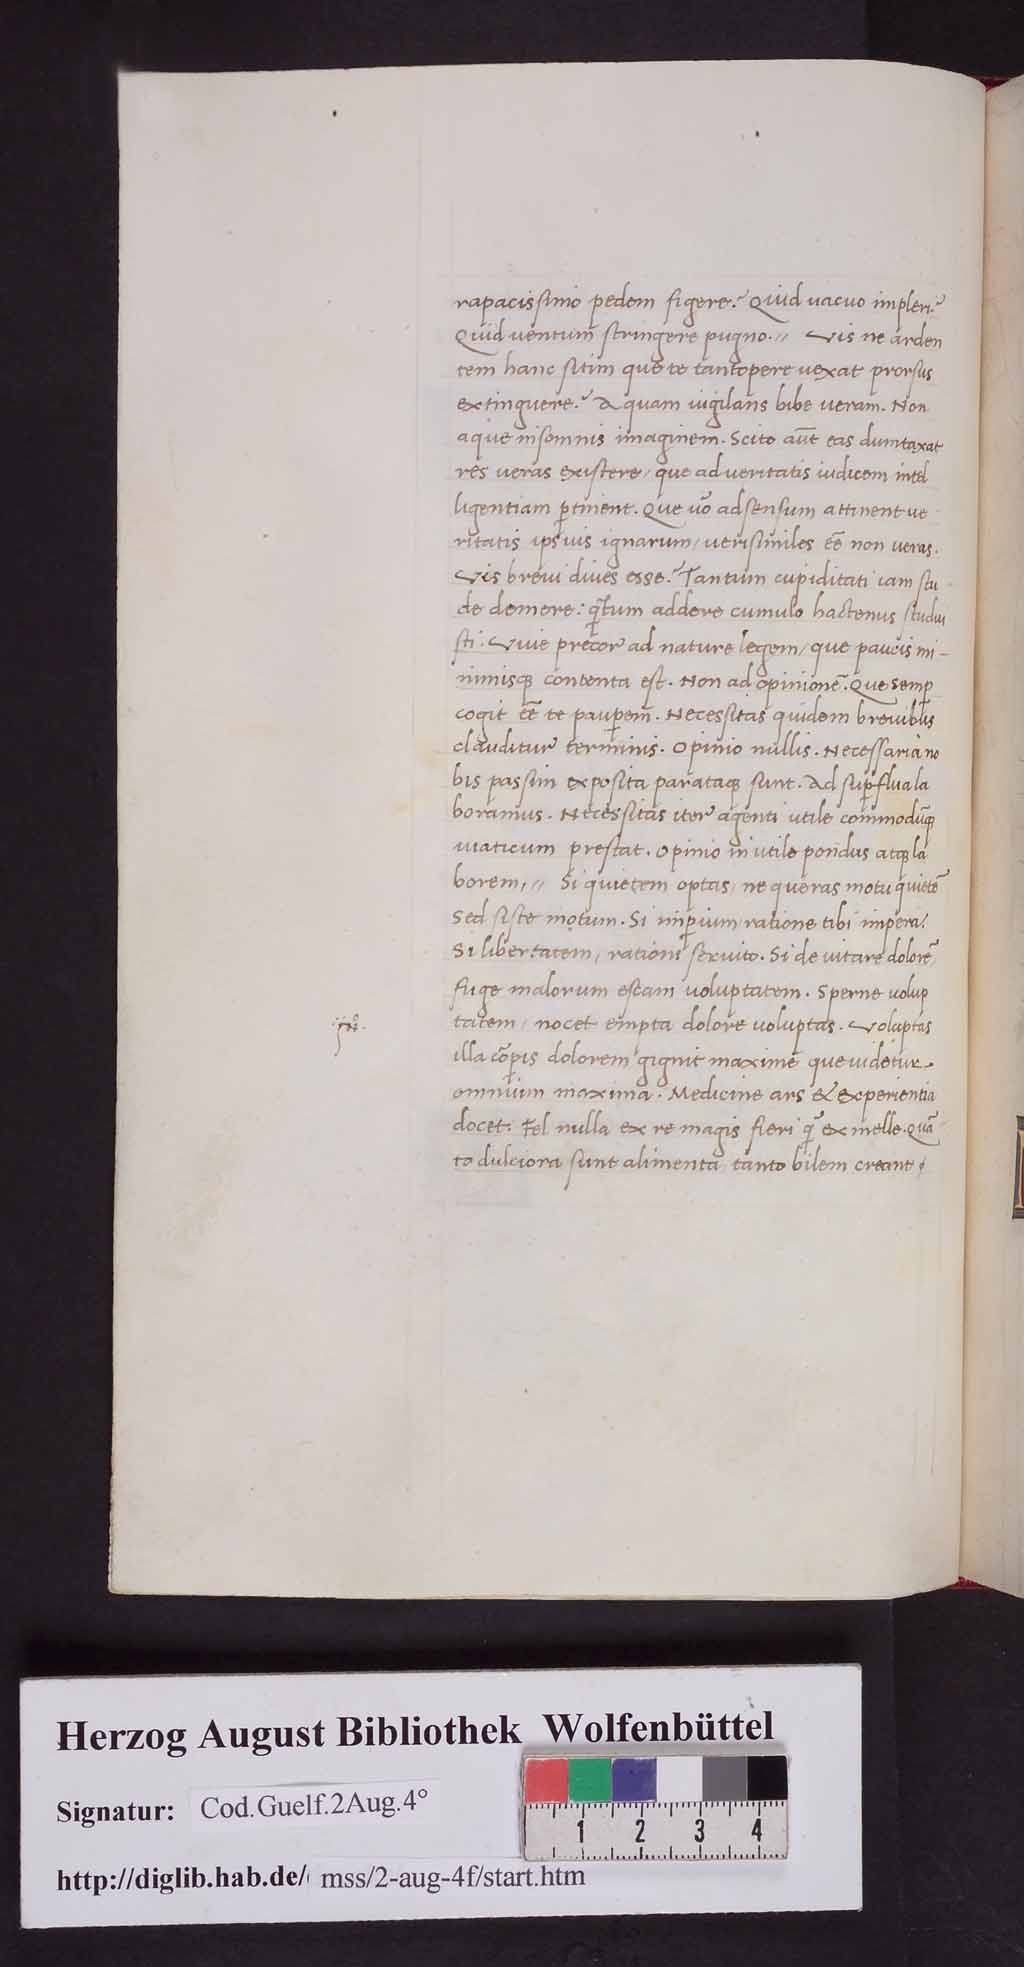 rapacissimo pedem figere? Quid uacuo impleri?
Quid uentum̄ stringere pugno.// Vis ne arden
tem hanc sitim que te tantopere uexat prorsus
extinguere? Aquam uigilans bibe ueram. Non
aque insomnis imaginem. Scito aūt eas dumtaxat
res ueras existere, que ad ueritatis iudicem intel
ligentiam ꝑtinent. Que uo᷃ ad sensum attinent ue
ritatis ipsius ignarum, uerisimiles eē non ueras.
Vis breui diues esse? Tantum cupiditati iam stu
de demere: qͣtum addere cumulo hactenus studui
sti. Viue precor ad nature legem, que paucis mi-
nimisqꝫ contenta est. Non ad opinionē. Que semꝑ
cogit eē te pauꝑem. Necessitas quidem breuibus
clauditur terminis. Opinio nullis. Necessaria no
bis passim exposita parataqꝫ sunt. Ad suꝑflua la
boramus. Necessitas iter agenti utile commodūqꝫ
uiaticum prestat. Opinio inutile pondus atqꝫ la
borem.// Si quietem optas, ne queras motu quietē
Sed siste motum. Si imꝑium, ratione tibi impera.
Si libertatem, rationi seruito. Si deuitare dolorē,
fuge malorum escam uoluptatem. Sperne uolup
tatem, nocet empta dolore uoluptas. Voluptas
illa cōꝑis dolorem gignit maxime que uidetur
omnium maxima. Medicine ars & experientia
docet. Fel nulla ex re magis fieri qͣ ex melle. Quā
to dulciora sunt alimenta, tanto bilem creant
Herzog August Bibliothek Wolfenbüttel
Signatur: Cod.Guelf.2Aug.4°
1 2 3 4
http://diglib.hab.de/ mss/2-aug-4f/start.htm